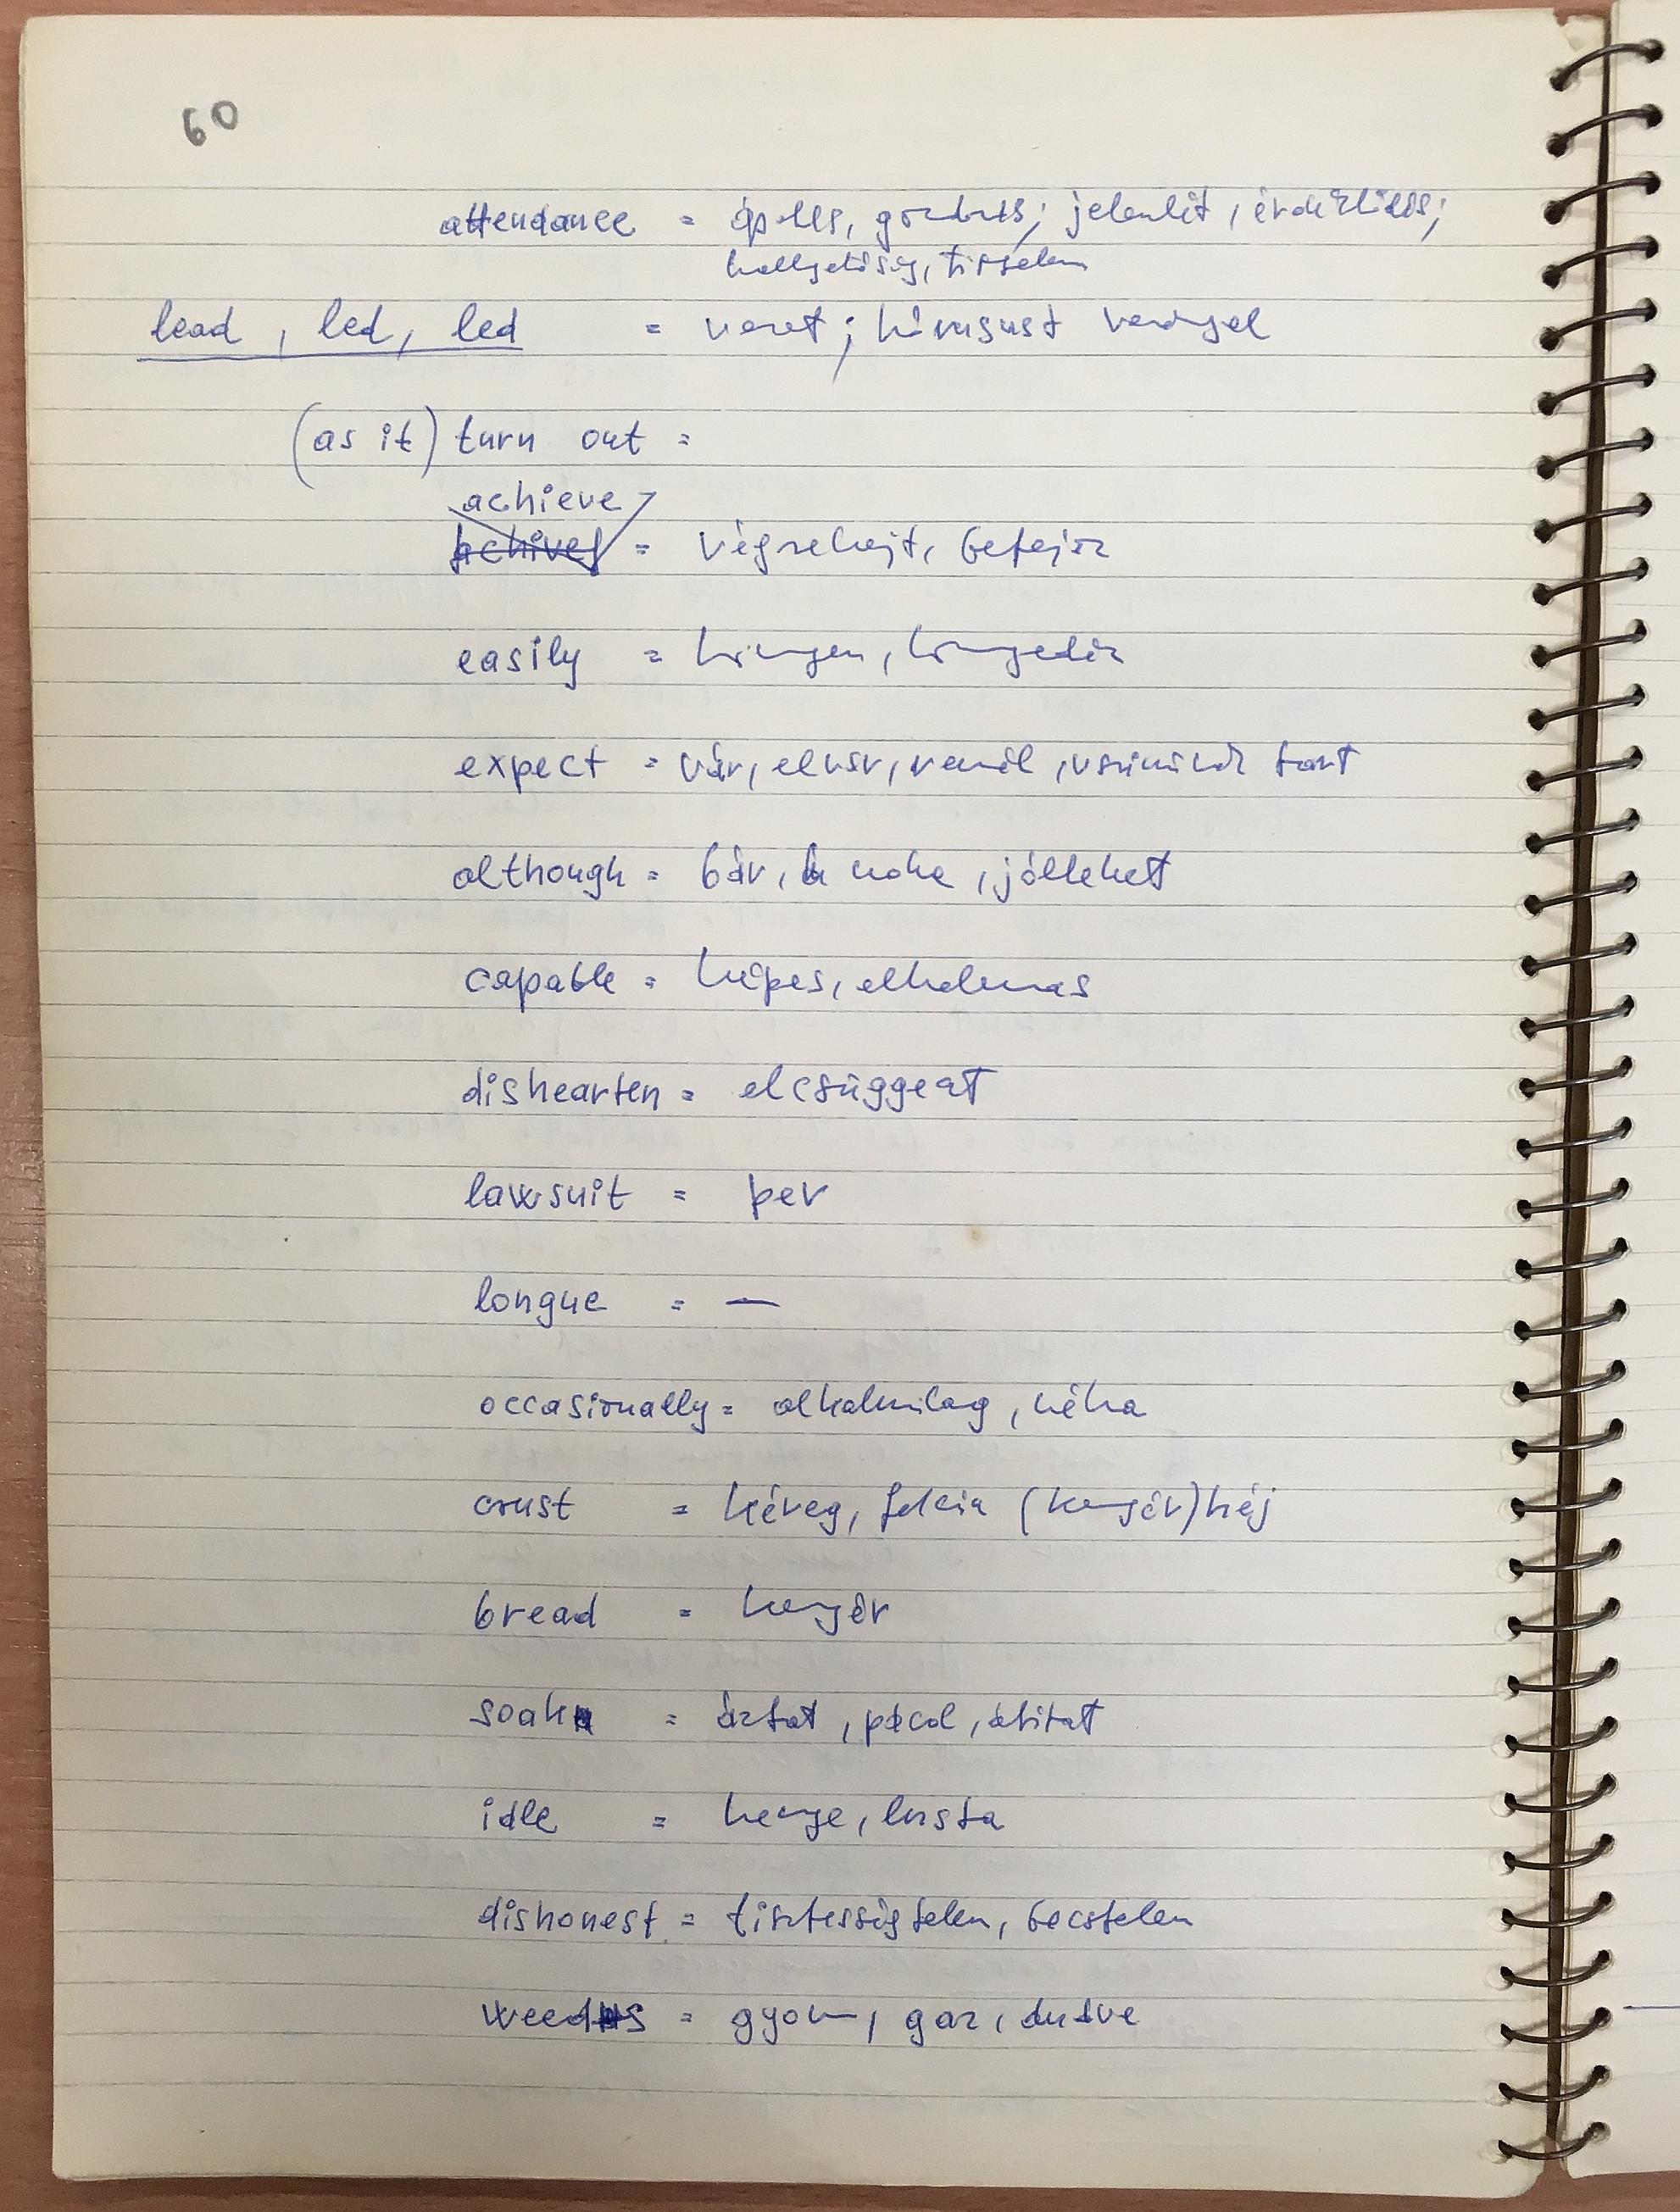 60
attendance = ápolás, gondozás; jelenlét, érdeklődés;
hallgatóság, tisztelem
lead, led, led = vezet; hírnust vezényel
(as it) turn out =
achieve
achives = végrehajt, befejez
easily = könnyen, könnyedén
expect = vár, elvár, remél, vsminek tart
although = bár, noha, jóllehet
capable = képes, alkalmas
dishearten = elcsüggeszt
lawsuit = per
longue = —
occasionally = alkalmilag, néha
crust = kéreg, (kenyér)héj
bread = kenyér
soak = áztat, pácol, átitat
idle = henye, lusta
dishonest = tisztességtelen, becstelen
weeds = gyom, gaz, dudva